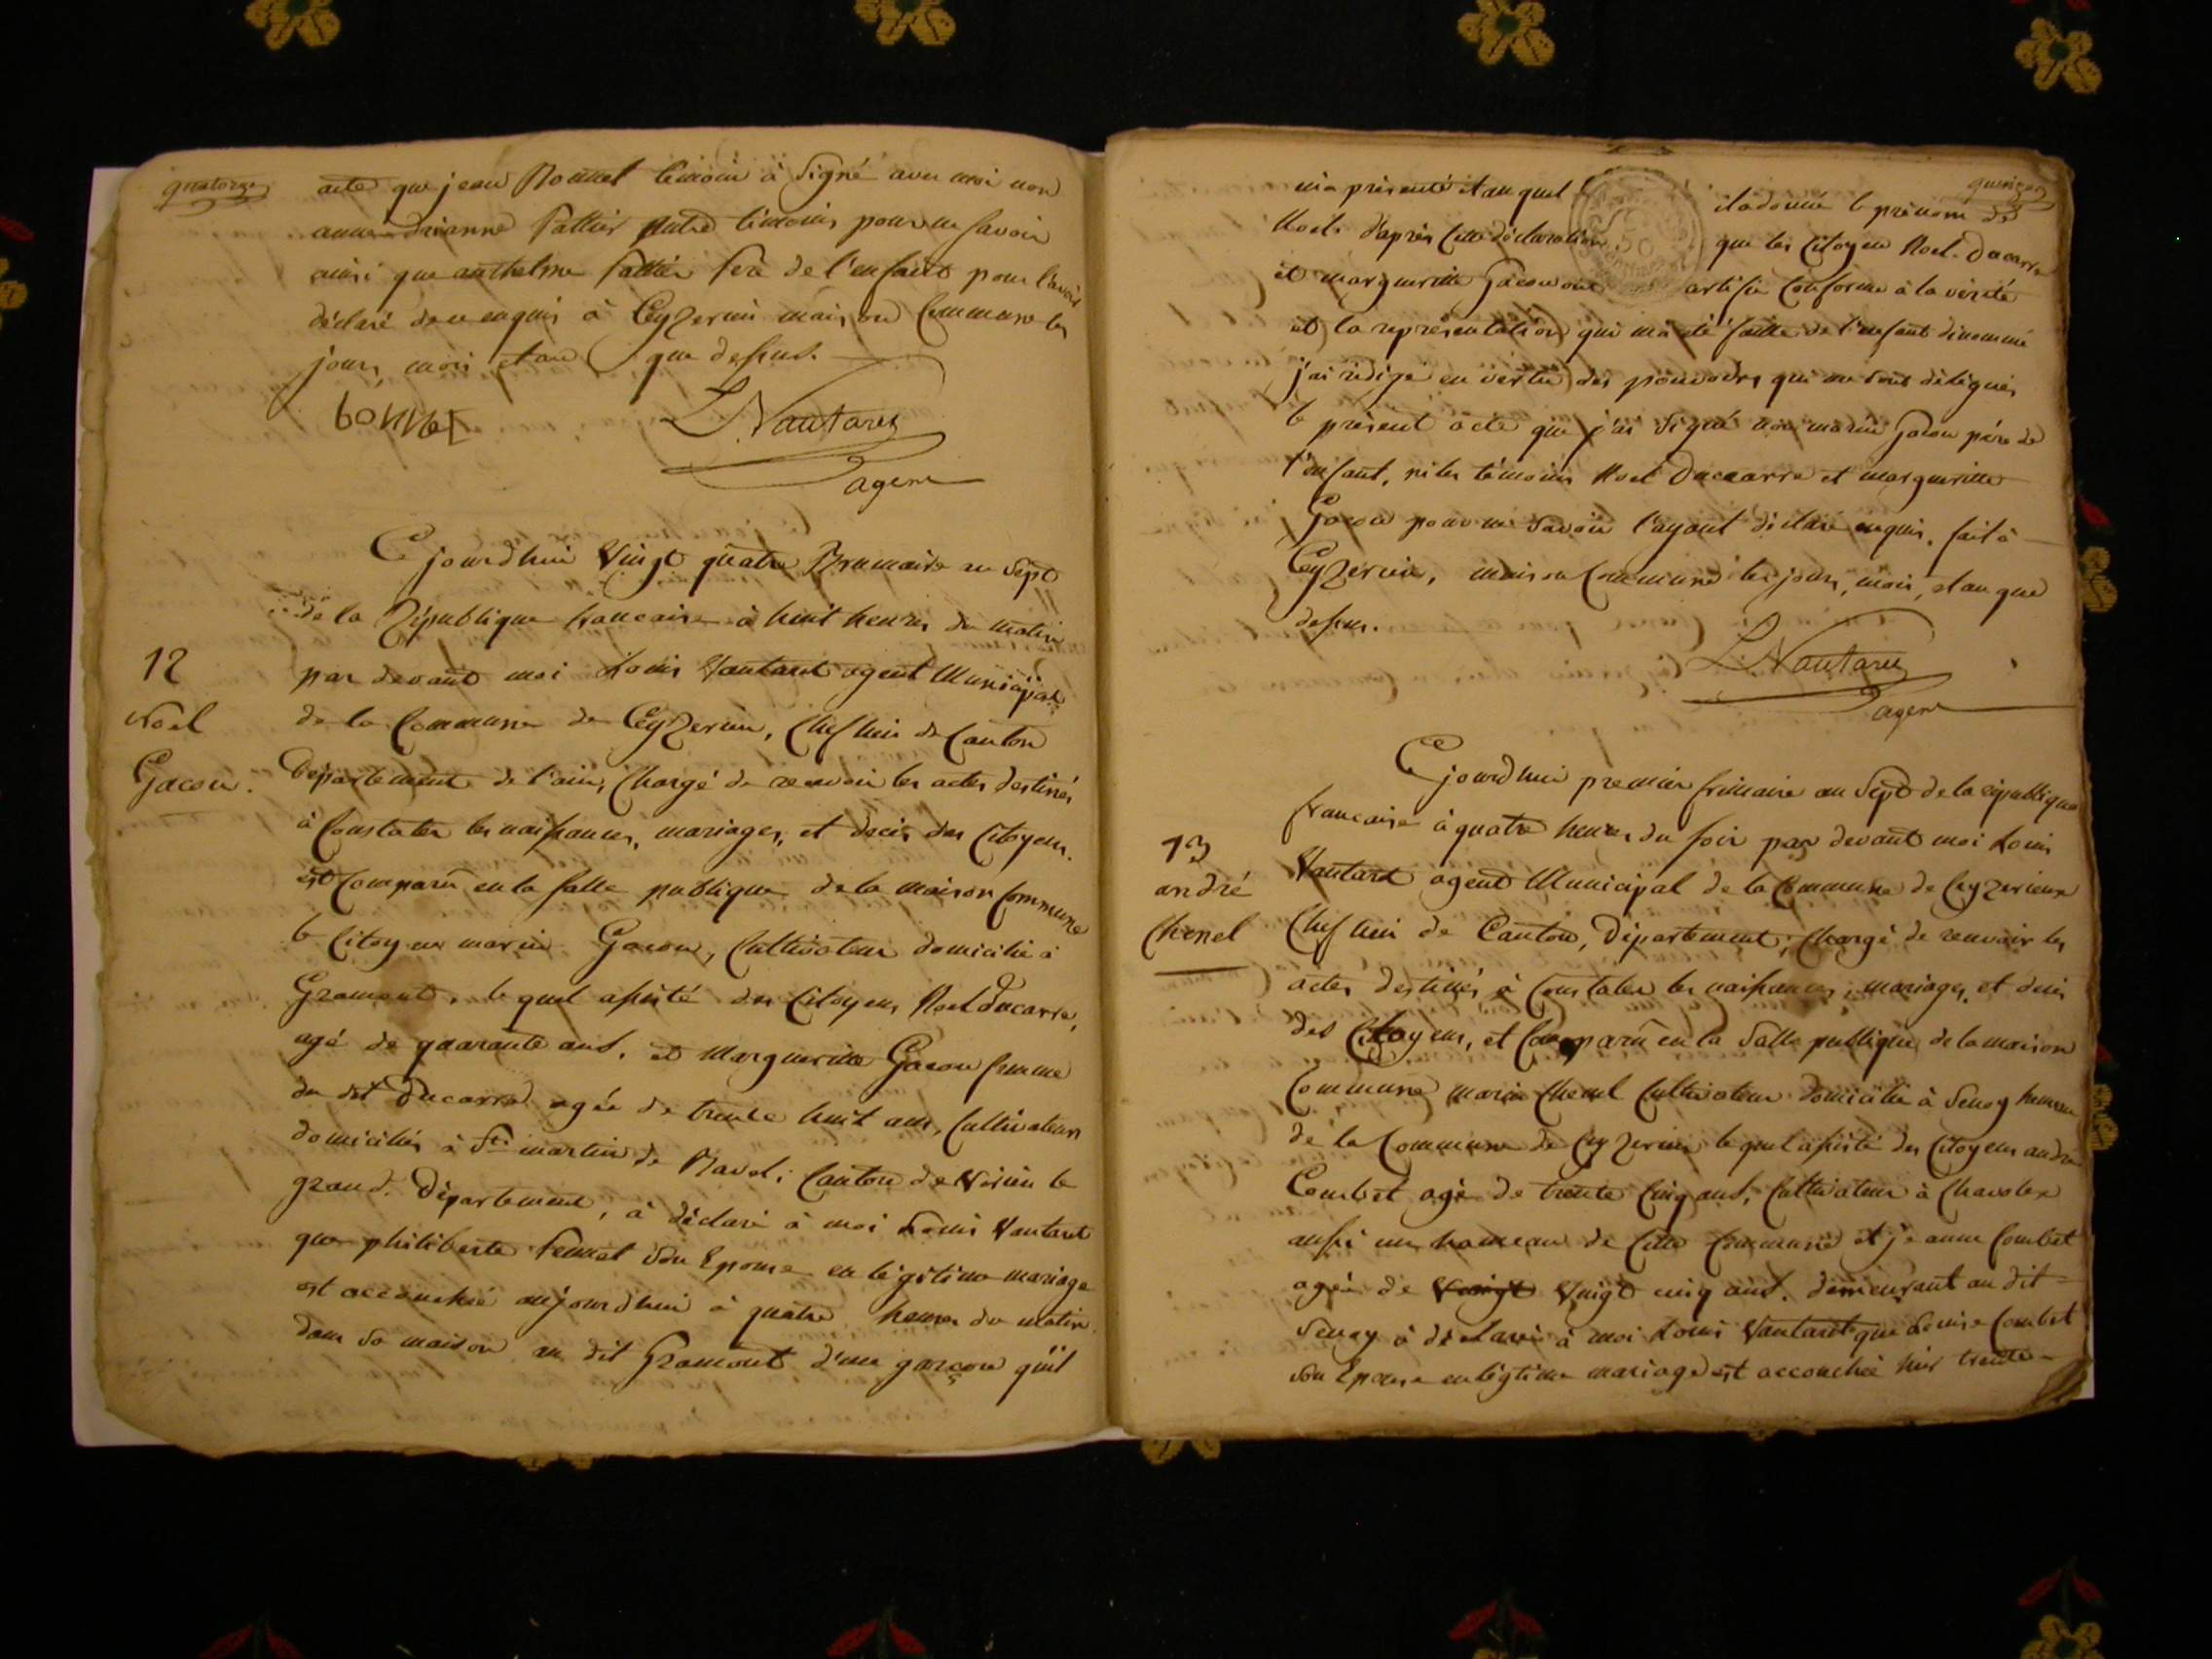 quatorze
acte que jean Bonnet temoin à Signé avec moi non
anne drianne Pattier autre témoins pour ne savoir
ainsi que anthelme Pattier Pere de l'enfant pour l'avoir
déclaré de ce enquis à Ceyzerieu maison Commune les
jours, mois et an que dessus.
bonnet
L. Vautaret
agent
Cejourdhui Vingt quatre Brumaire an Sept
de la République francaise à huit heures du matin
12
noël
Gacon.
par devant moi Louis Vautaret agent Municipal
de la Commune de Ceyzerieu, Chef lieu de Canton
Département de l'ain, Chargé de recevoir les actes destinés
à Constater les naissances, mariages, et décès des Citoyens.
est Comparû en la salle publique de la maison Commune
le Citoyen marin Gacon, Cultivateur domicilié à
Gramont, le quel assisté des Citoyens Noel Ducarre,
agé de quarante ans, et Margueritte Gacon femme
du dit Ducarre agée de trente huit ans, Cultivateurs
domiciliés à St martin de Bavel, Canton de Virieu le
grand, Département, à déclaré à moi Louis Vautaret
que philiberte son Epouse en légitime mariage
est accouchée aujourdhui à quatre heures du matin
dans sa maison au dit Gramont d'un garçon qu'il
quinze
m'a présenté et au quel il a donné le prénom de
Noel. D'après cette déclaration que les Citoyens Noel Ducarre
et margueritte Gacon ont certifié Conforme à la vérité
et la représentation qui m'a été faitte de l'enfant dénommé
j'ai rédigé en vertu des pouvoirs qui me sont délégués
le présent acte que j'ai Signé non marin Gacon père de
l'enfant, ni les témoins Noel Ducarre et margueritte
Gacon pour ne savoir l'ayant déclaré enquis, fait à
Ceyzerieu, maison Commune les jours, mois, et an que
dessus.
L. Vautaret
agent
Cejourdhui premier frimaire an Sept de la république
francaise à quatre heures du soir par devant moi Louis
13
andré
Chenel
Vautaret agent Municipal de la Commune de Ceyzerieux
Chef lieu de Canton, Département, Chargé de recevoir les
actes destinés à Constater les naissances, mariages, et décès
des Citoyens, est Comparû en la Salle publique de la maison
Commune marin Chenel Cultivateur domicilié à Senoy hameau
de la Commune de Ceyzerieu le quel assisté des Citoyens andré
Combet agé de trente Cinq ans, Cultivateur à Chavolex
aussi un hameau de Cette Commune et jeanne Combet
agée de Vingt Vingt cinq ans, demeurant au dit
Senoy à déclaré à moi Louis Vautaret que Louise Combet
son Epouse en légitime mariage est accouchée hier trente